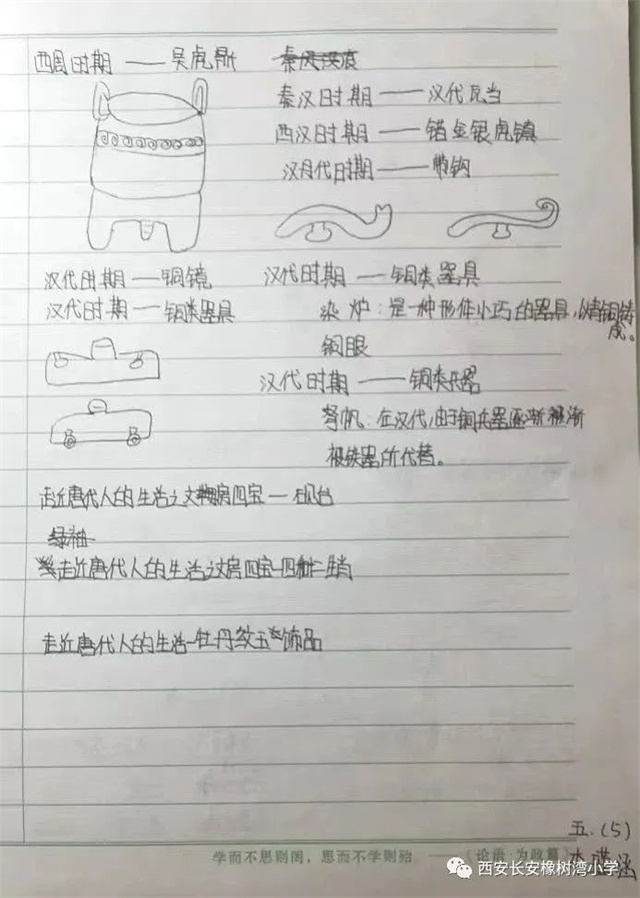 西周时期 —— 吴虎鼎
秦汉时期 —— 汉代瓦当
西汉时期 —— 错金银虎镇
汉代时期 —— 带钩
汉代时期 — 铜镜
汉代时期 — 铜类器具
汉代时期 —— 铜类器具
染炉：是一种形体小巧的器具，以青铜铸成。
铜眼
汉代时期 —— 铜类兵器
弩机：在汉代，由于铜兵器逐渐
被铁器所代替。
走近唐代人的生活之文房四宝 — 砚台
绿釉
走近唐代人的生活之文房四宝 — 生肖
走近唐代人的生活 — 牡丹纹玉饰品
学而不思则罔，思而不学则殆。——《论语·为政篇》
五.(5)
西安长安橡树湾小学